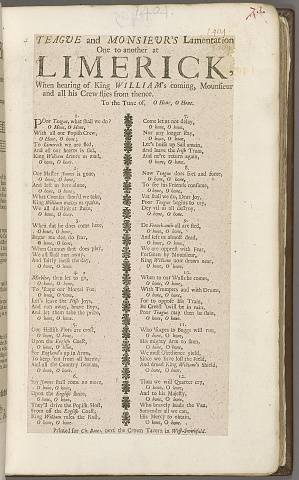 TEAGUE and MONSIEUR's Lamentation
One to another at
LIMERICK,
When hearing of King WILLIAM's coming, Mounsieur
and all his Crew flies from thence.
To the Tune of, O Hone, O Hone.
POor Teague, what shall we do?
O Hone, O Hone,
With all our Popish Crew,
O Hone, O Hone;
To Limerick we are fled,
And all our hearts is sad,
King William drives us mad,
O hone, O hone.
2.
Our Master James is gone,
O hone, O hone,
And left us here alone,
O hone, O hone.
What Comfort find we here,
King William makes us quake,
We all do shake,
O hone, O hone.
3.
When that he does come here,
O hone, O hone,
Begar me do's so fear,
O hone, O hone,
When Cannon they does play,
We all shall run away,
And fairly loose the day,
O hone, O hone.
4.
Mockboy, then let us go,
O hone, O hone,
To Escape our Mortal Foe,
O hone, O hone.
Let's leave the Irish Tory,
And run away, before they,
And let them take the prize,
O hone, O hone.
5.
Our Hellish Plots are crost,
O hone, O hone,
Upon the English Coast,
O hone, O hone,
For England's up in Arms,
To keep 'em from all harms,
And all the Country swarms,
O hone, O hone.
6.
Say James shall come no more,
O hone, O hone,
Upon the English shore,
O hone, O hone,
They'l drive the Popish Host,
From off the English Coast,
King William rules the Rost,
O hone, O hone.
7.
Come let us not delay,
O hone, O hone,
Nor any longer stay,
O hone, O hone.
Let's hoist up Sail amain,
And leave the Irish Train,
And ne're return again,
O hone, O hone.
8.
Now Teague does fret and fume,
O hone, O hone,
To see his Friends consume,
O hone, O hone.
Vat shall we do, Dear Joy,
Poor Teague begins to cry,
Dey vil us all destroy,
O hone, O hone.
9.
De French men all are fled,
O hone, O hone,
And left us almost dead,
O hone, O hone,
We are opprest with Fear,
Forsaken by Mounsieur,
King William now drawn near,
O hone, O hone.
10.
When to our Walls he comes,
O hone, O hone,
With Trumpets and with Drums,
O hone, O hone,
For to oppose his Train,
he Creast shall be in vain,
Poor Teague may then be slain,
O hone, O hone.
11.
Who Shapes in Buggs will run,
O hone, O hone,
His mighty Arm to shun,
O hone, O hone.
We must Obedience yield,
Since we have lost the Field,
And dread King William's Shield,
O hone, O hone.
12.
Then we will Quarter cry,
O hone, O hone,
And to his Majesty,
O hone, O hone,
Who bravely leads the Van,
Surrender all we can,
His Mercy to obtain,
O hone, O hone.
Printed for Ch. Bates, next the Crown Tavern in West-Smithfield.